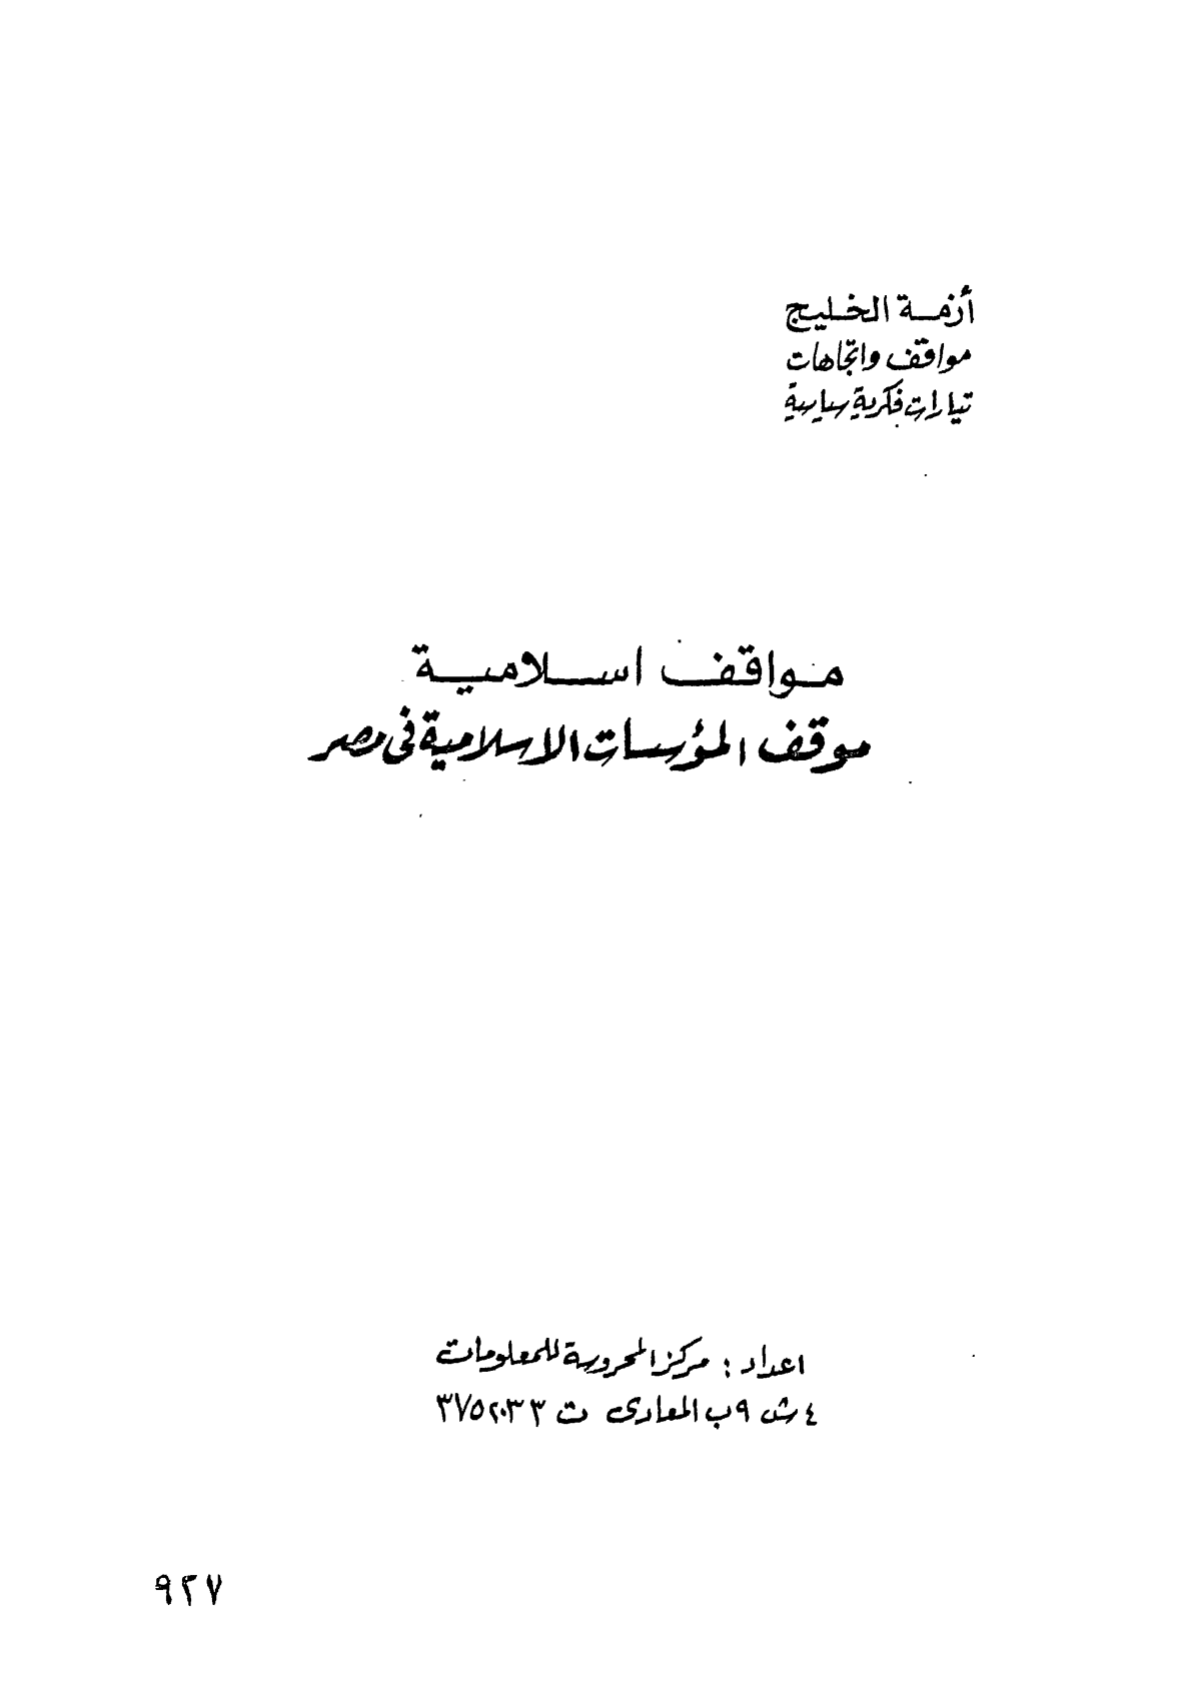 أزمة الخليج
مواقف واتجاهات
تيارات فكرية سياسية
مواقف اسلامية
موقف المؤسسات الاسلامية فى مصر
اعداد : مركز المحروسة للمعلومات
٤ ش ٩ب المعادى ت ٣٧٥٢٠٣٣
٩٢٧